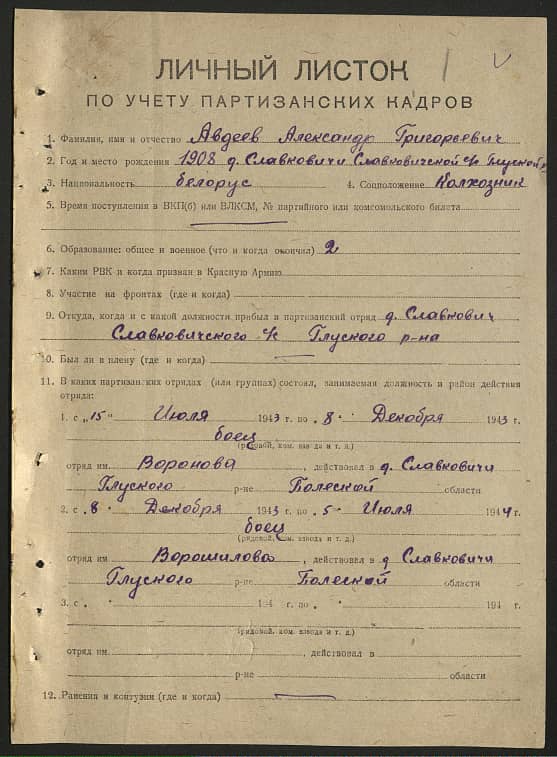 ЛИЧНЫЙ ЛИСТОК
ПО УЧЕТУ ПАРТИЗАНСКИХ КАДРОВ
1. Фамилия, имя и отчество Авдеев Александр Григорьевич
2. Год и место рождения 1908 д. Славковичи Славковичской с/с Глуской р.
3. Национальность белорус 4. Соцположение Колхозник
5. Время поступления в ВКП(б) или ВЛКСМ, № партийного или комсомольского билета
6. Образование: общее и военное (что и когда окончил) 2
7. Каким РВК и когда призван в Красную Армию
8. Участие на фронтах (где и когда)
9. Откуда, когда и с какой должности прибыл в партизанский отряд д. Славкович
Славковичского с/с Глуского р-на
10. Был ли в плену (где и когда)
11. В каких партизанских отрядах (или группах) состоял, занимаемая должность и район действия
отряда:
1. с „15" Июля 1943 г. по „8" Декабря 1943 г.
боец
(рядовой, ком. взвода и т. д.)
отряд им. Воронова, действовал в д. Славковичи
Глуского р-не Полеской области
2. с „8" Декабря 1943 г. по „5" Июля 1944 г.
боец
(рядовой, ком. взвода и т. д.)
отряд им. Ворошилова, действовал в д Славковичи
Глуского р-не Полеской области
3. с „ " 194 г. по „ " 194 г.
(рядовой, ком. взвода и т. д.)
отряд им. , действовал в
р-не области
12. Ранения и контузии (где и когда)